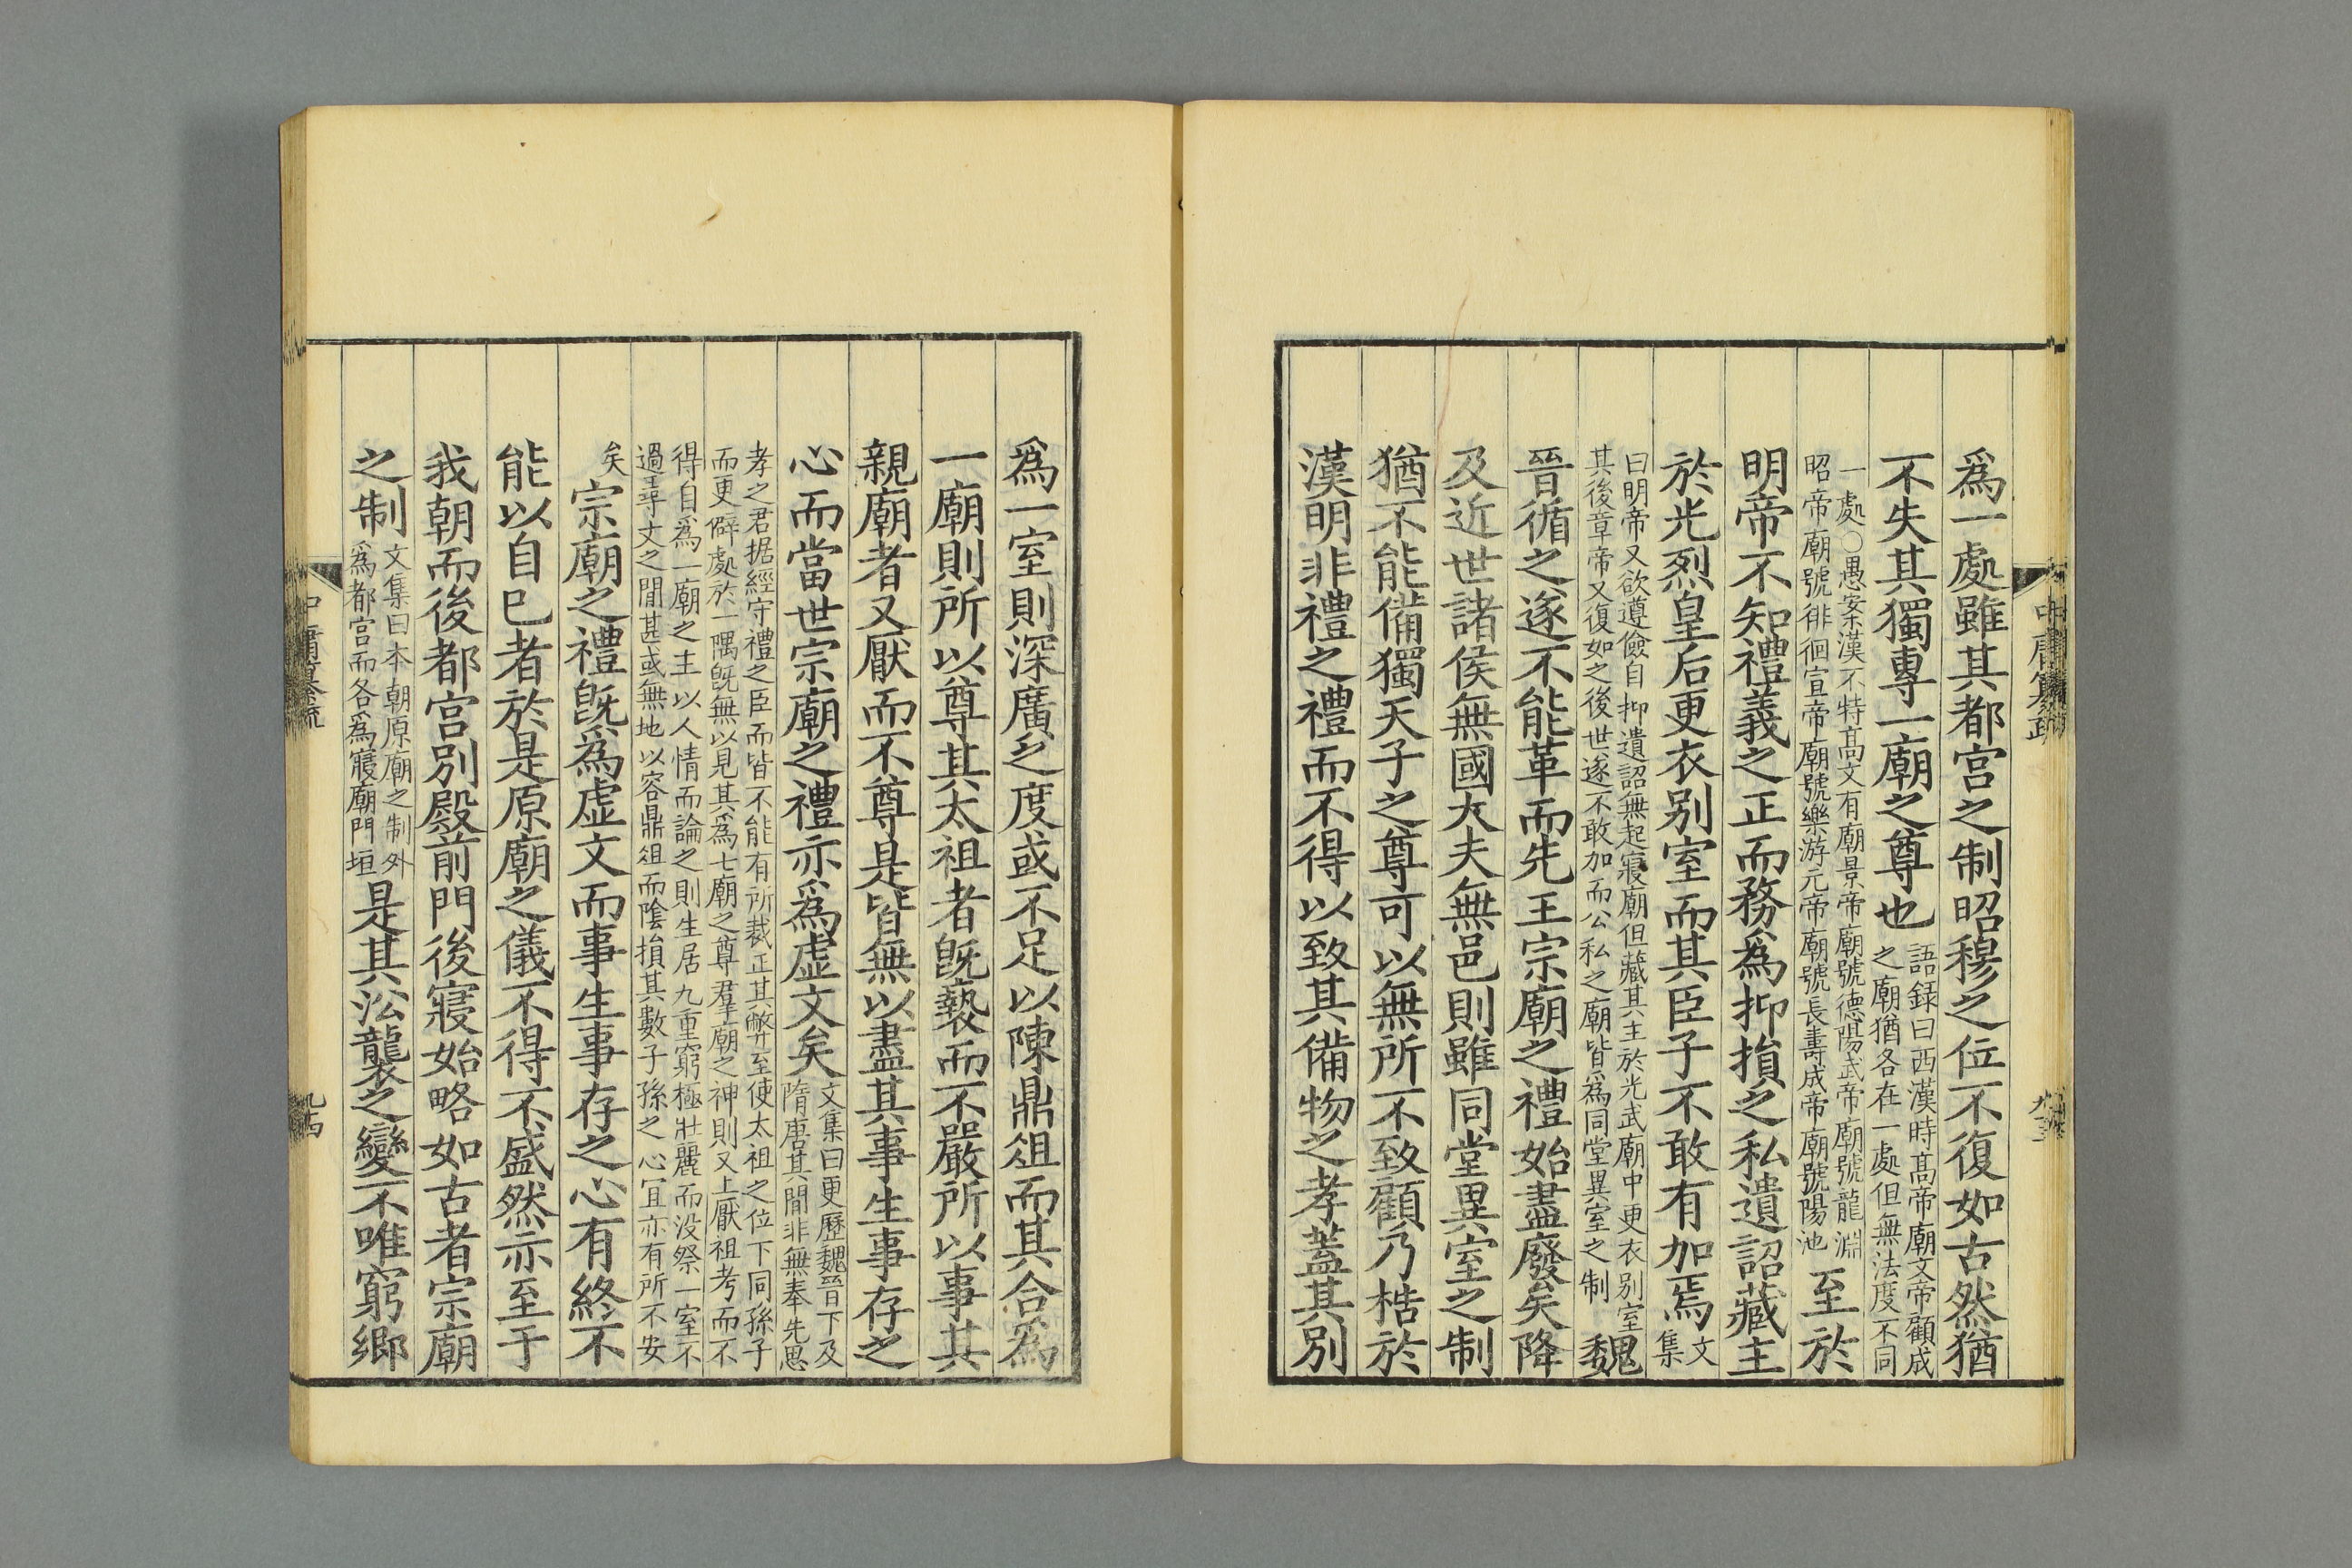 中庸纂疏
九十三
爲一處雖其都宮之制昭穆之位不復如古然猶
不失其獨專一廟之尊也
語録曰西漢時髙帝廟文帝顧成
之廟猶各在一處但無法度不同
一處○愚案漢不特髙文有廟景帝廟號德陽武帝廟號龍淵
昭帝廟號徘徊宣帝廟號樂游元帝廟號長壽成帝廟號陽池
至於
明帝不知禮義之正而務爲抑損之私遺詔藏主
於光烈皇后更衣別室而其臣子不敢有加焉
文
集
曰明帝又欲遵儉自抑遺詔無起寢廟但藏其主於光武廟中更衣別室
其後章帝又復如之後世遂不敢加而公私之廟皆爲同堂異室之制
魏
晉循之遂不能革而先王宗廟之禮始盡廢矣降
及近世諸侯無國大夫無邑則雖同堂異室之制
猶不能備獨天子之尊可以無所不致顧乃梏於
漢明非禮之禮而不得以致其備物之孝蓋其別
爲一室則深廣之度或不足以陳鼎俎而其合爲
一廟則所以尊其太祖者旣褻而不嚴所以事其
親廟者又厭而不尊是皆無以盡其事生事存之
心而當世宗廟之禮亦爲虛文矣
文集曰更歷魏晉下及
隋唐其間非無奉先思
孝之君据經守禮之臣而皆不能有所裁正其弊至使太祖之位下同孫子
而更僻處於一隅旣無以見其爲七廟之尊羣廟之神則又上厭祖考而不
得自爲一廟之主以人情而論之則生居九重窮極壯麗而没祭一室不
過尋丈之間甚或無地以容鼎俎而隂損其數子孫之心冝亦有所不安
矣
宗廟之禮旣爲虛文而事生事存之心有終不
能以自巳者於是原廟之儀不得不盛然亦至于
我朝而後都宮別殿前門後寢始略如古者宗廟
之制
文集曰本朝原廟之制外
爲都宮而各爲寢廟門垣
是其沿襲之變不唯窮鄉
中庸纂疏
九十四